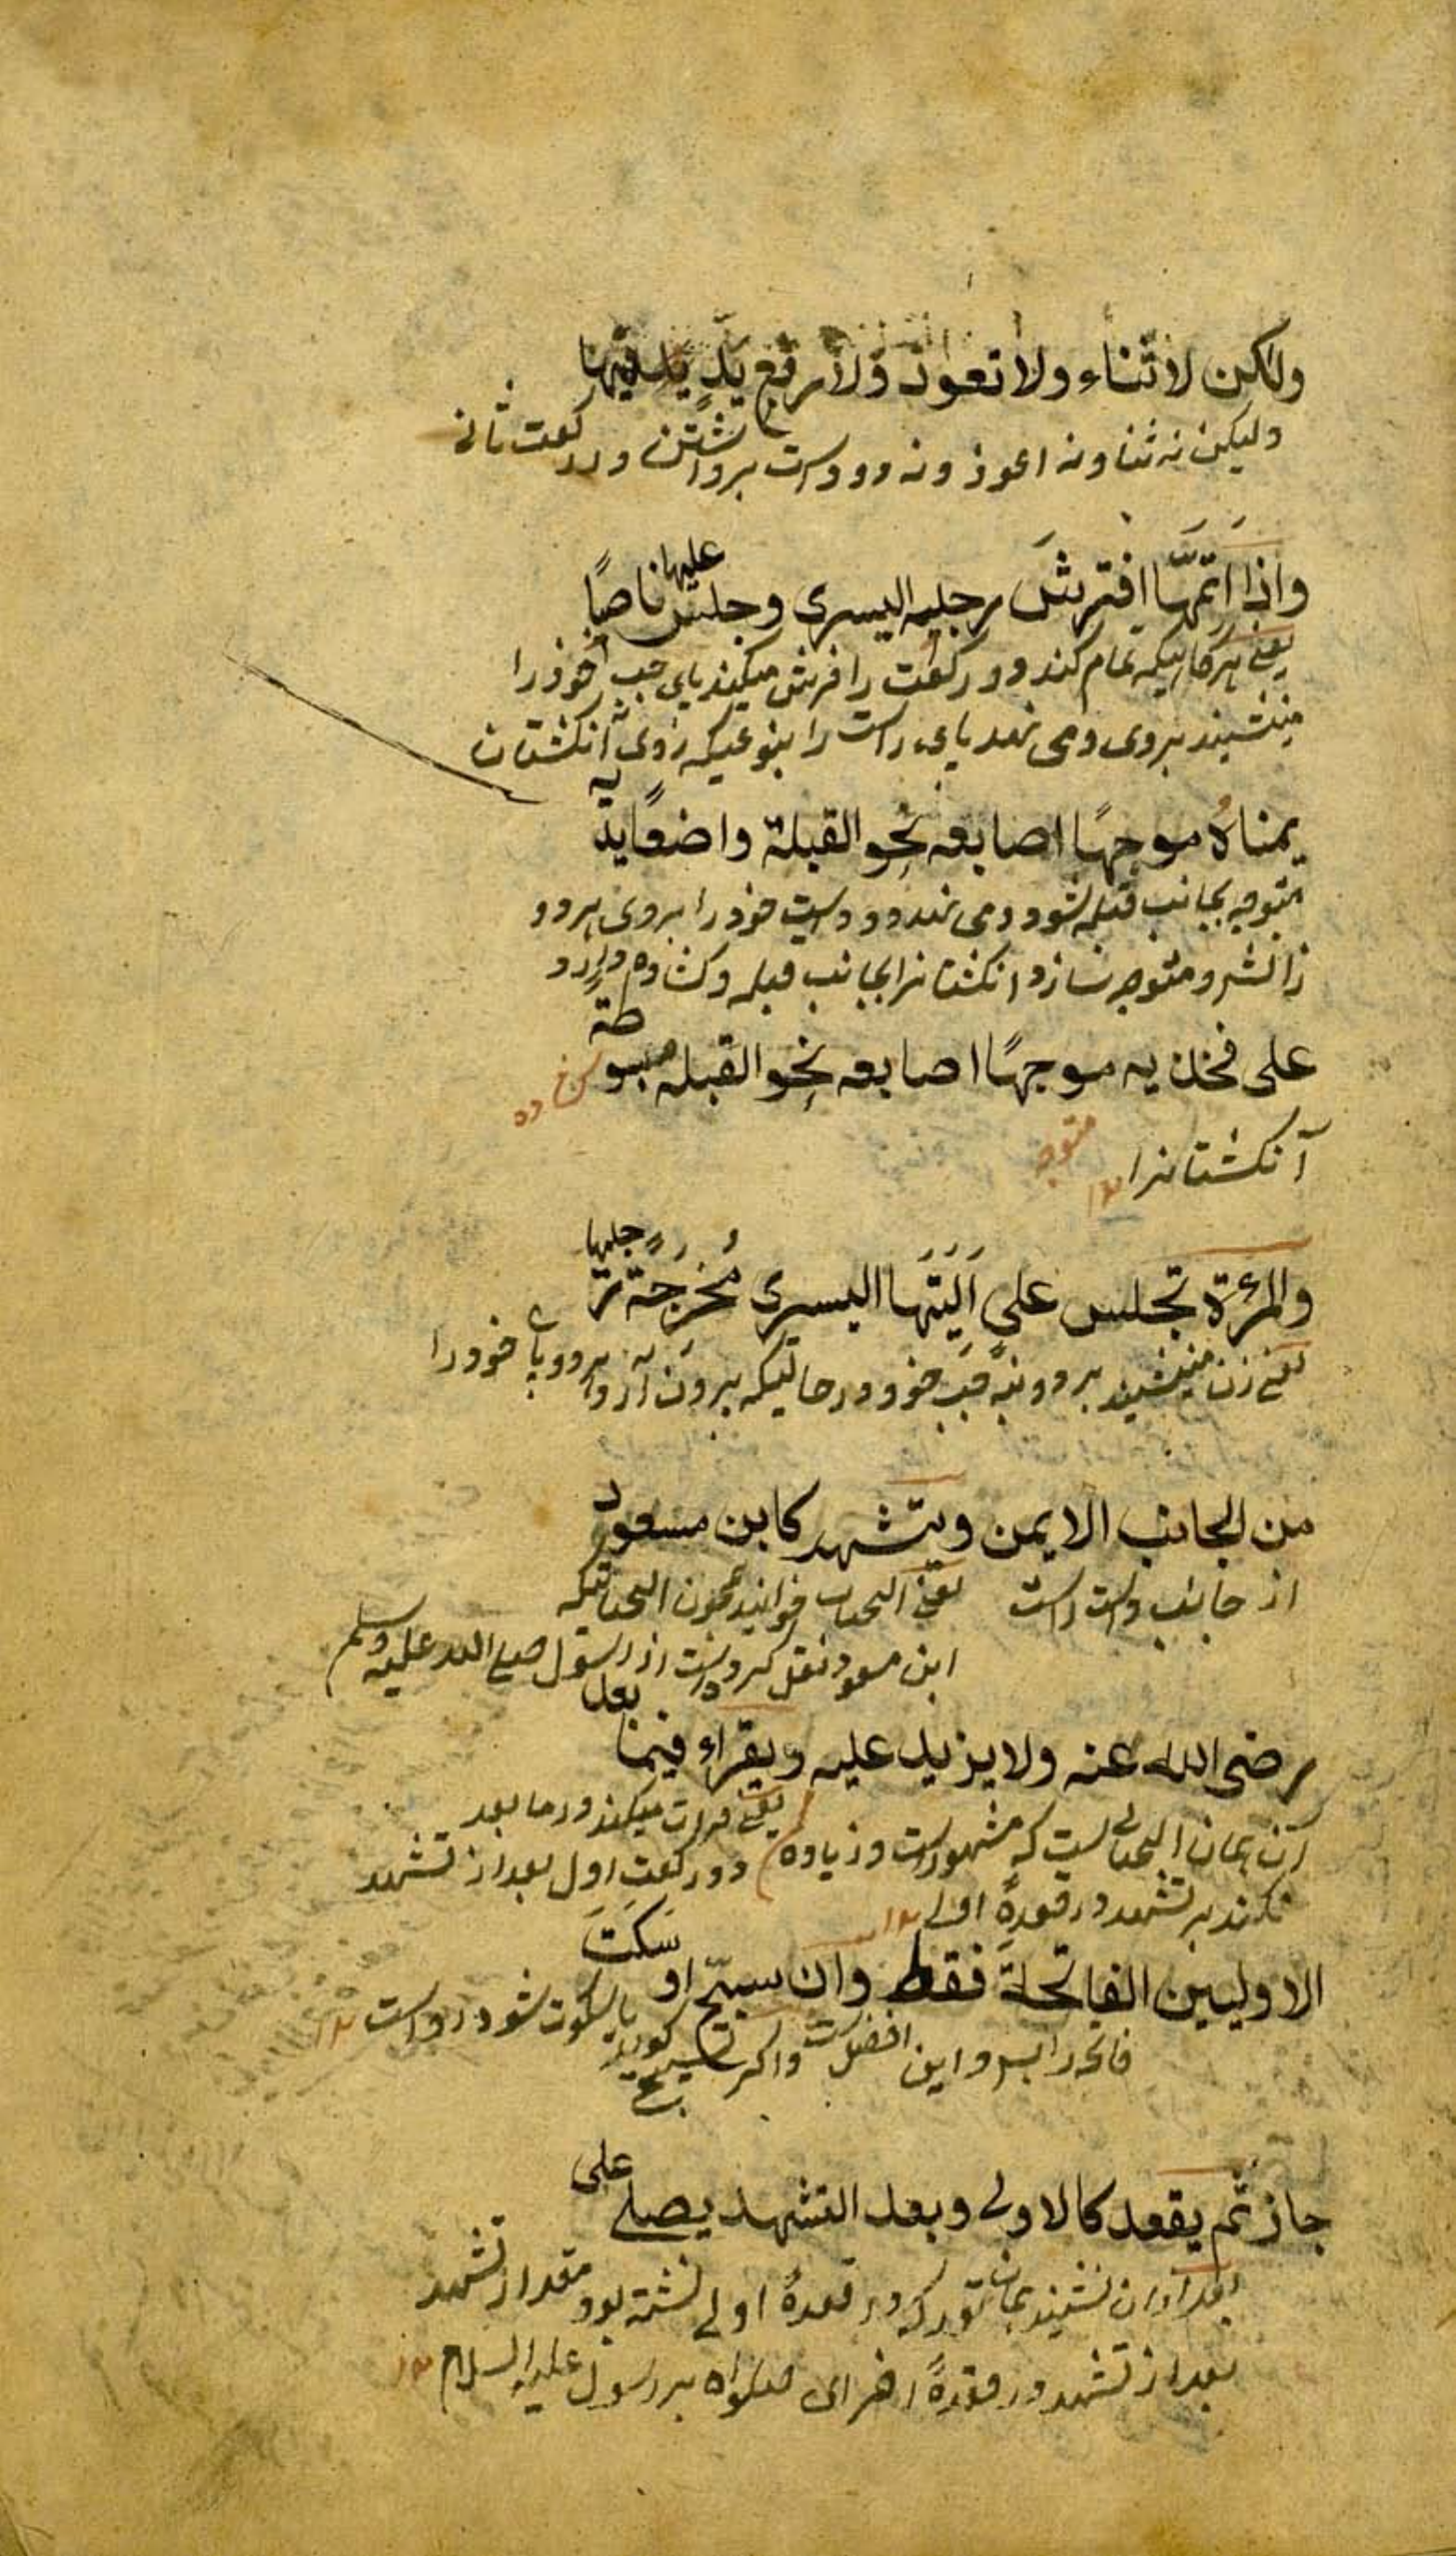 ولكن لا ثناء ولا تعوذ ولا رفع يد يه فيها
وليكن نه ثنا و نه اعوذ و نه دو دست برداشتن در ركعت ثانى
واذا اتمها افترش رجله اليسرى وجلس عليها ناصبًا
يعنى هر كاهيكه تمام كند دو ركعت را فرش ميكند پاى چپ خود را
مينشيند بروى و مى نهد پاى راست را بنوعيكه روى انكشتان
يمناه موجهًا اصابعه نحو القبلة واضعًا يديه
متوجه بجانب قبله شود و مى نهد دو دست خود را بروى هر دو
زانش و متوجه سازد انكشتانرا بجانب قبله و كشاده دارد
على فخذيه موجهًا اصابعه نحو القبله مبسوطة
آنكشتانرا ١٢ متوجه
والمرءة تجلس على اَليَتَها اليسرى مُخرَجة رجليها
يعنى زن مينشيند بر دنبه چپ خود در حاليكه بيرون آرد هر دو پاى خود را
من الجانب الايمن ويتشهد كابن مسعود
از جانب راست يعنى التحيات خوانيد همچون التحياتيكه
ابن مسعود نقل كرده است از رسول صلى الله عليه وسلم
رضى الله عنه ولا يزيد عليه ويقراء فيما بعد
آن همان التحياتى است كه مشهور است و زياده يعنى قرات ميكند در ما بعد
نكند بر تشهد در قعدهٔ اولى ١٢ دو ركعت اول بعد از تشهد
الاوليين الفاتحة فقط وان سبح او سَكَتَ
فاتحه را بس و اين افضل است و اكر تسبيح كويد يا سكوت شود رواست ١٢
جاز ثم يقعد كالاولى وبعد التشهد يصلى على
بعد از ان نشيند همان قدر كه در قعدهٔ اولى نشسته بود مقدار تشهد
بعد از تشهد در قعدهٔ اخراى صلواة بر رسول عليه السلام ١٢